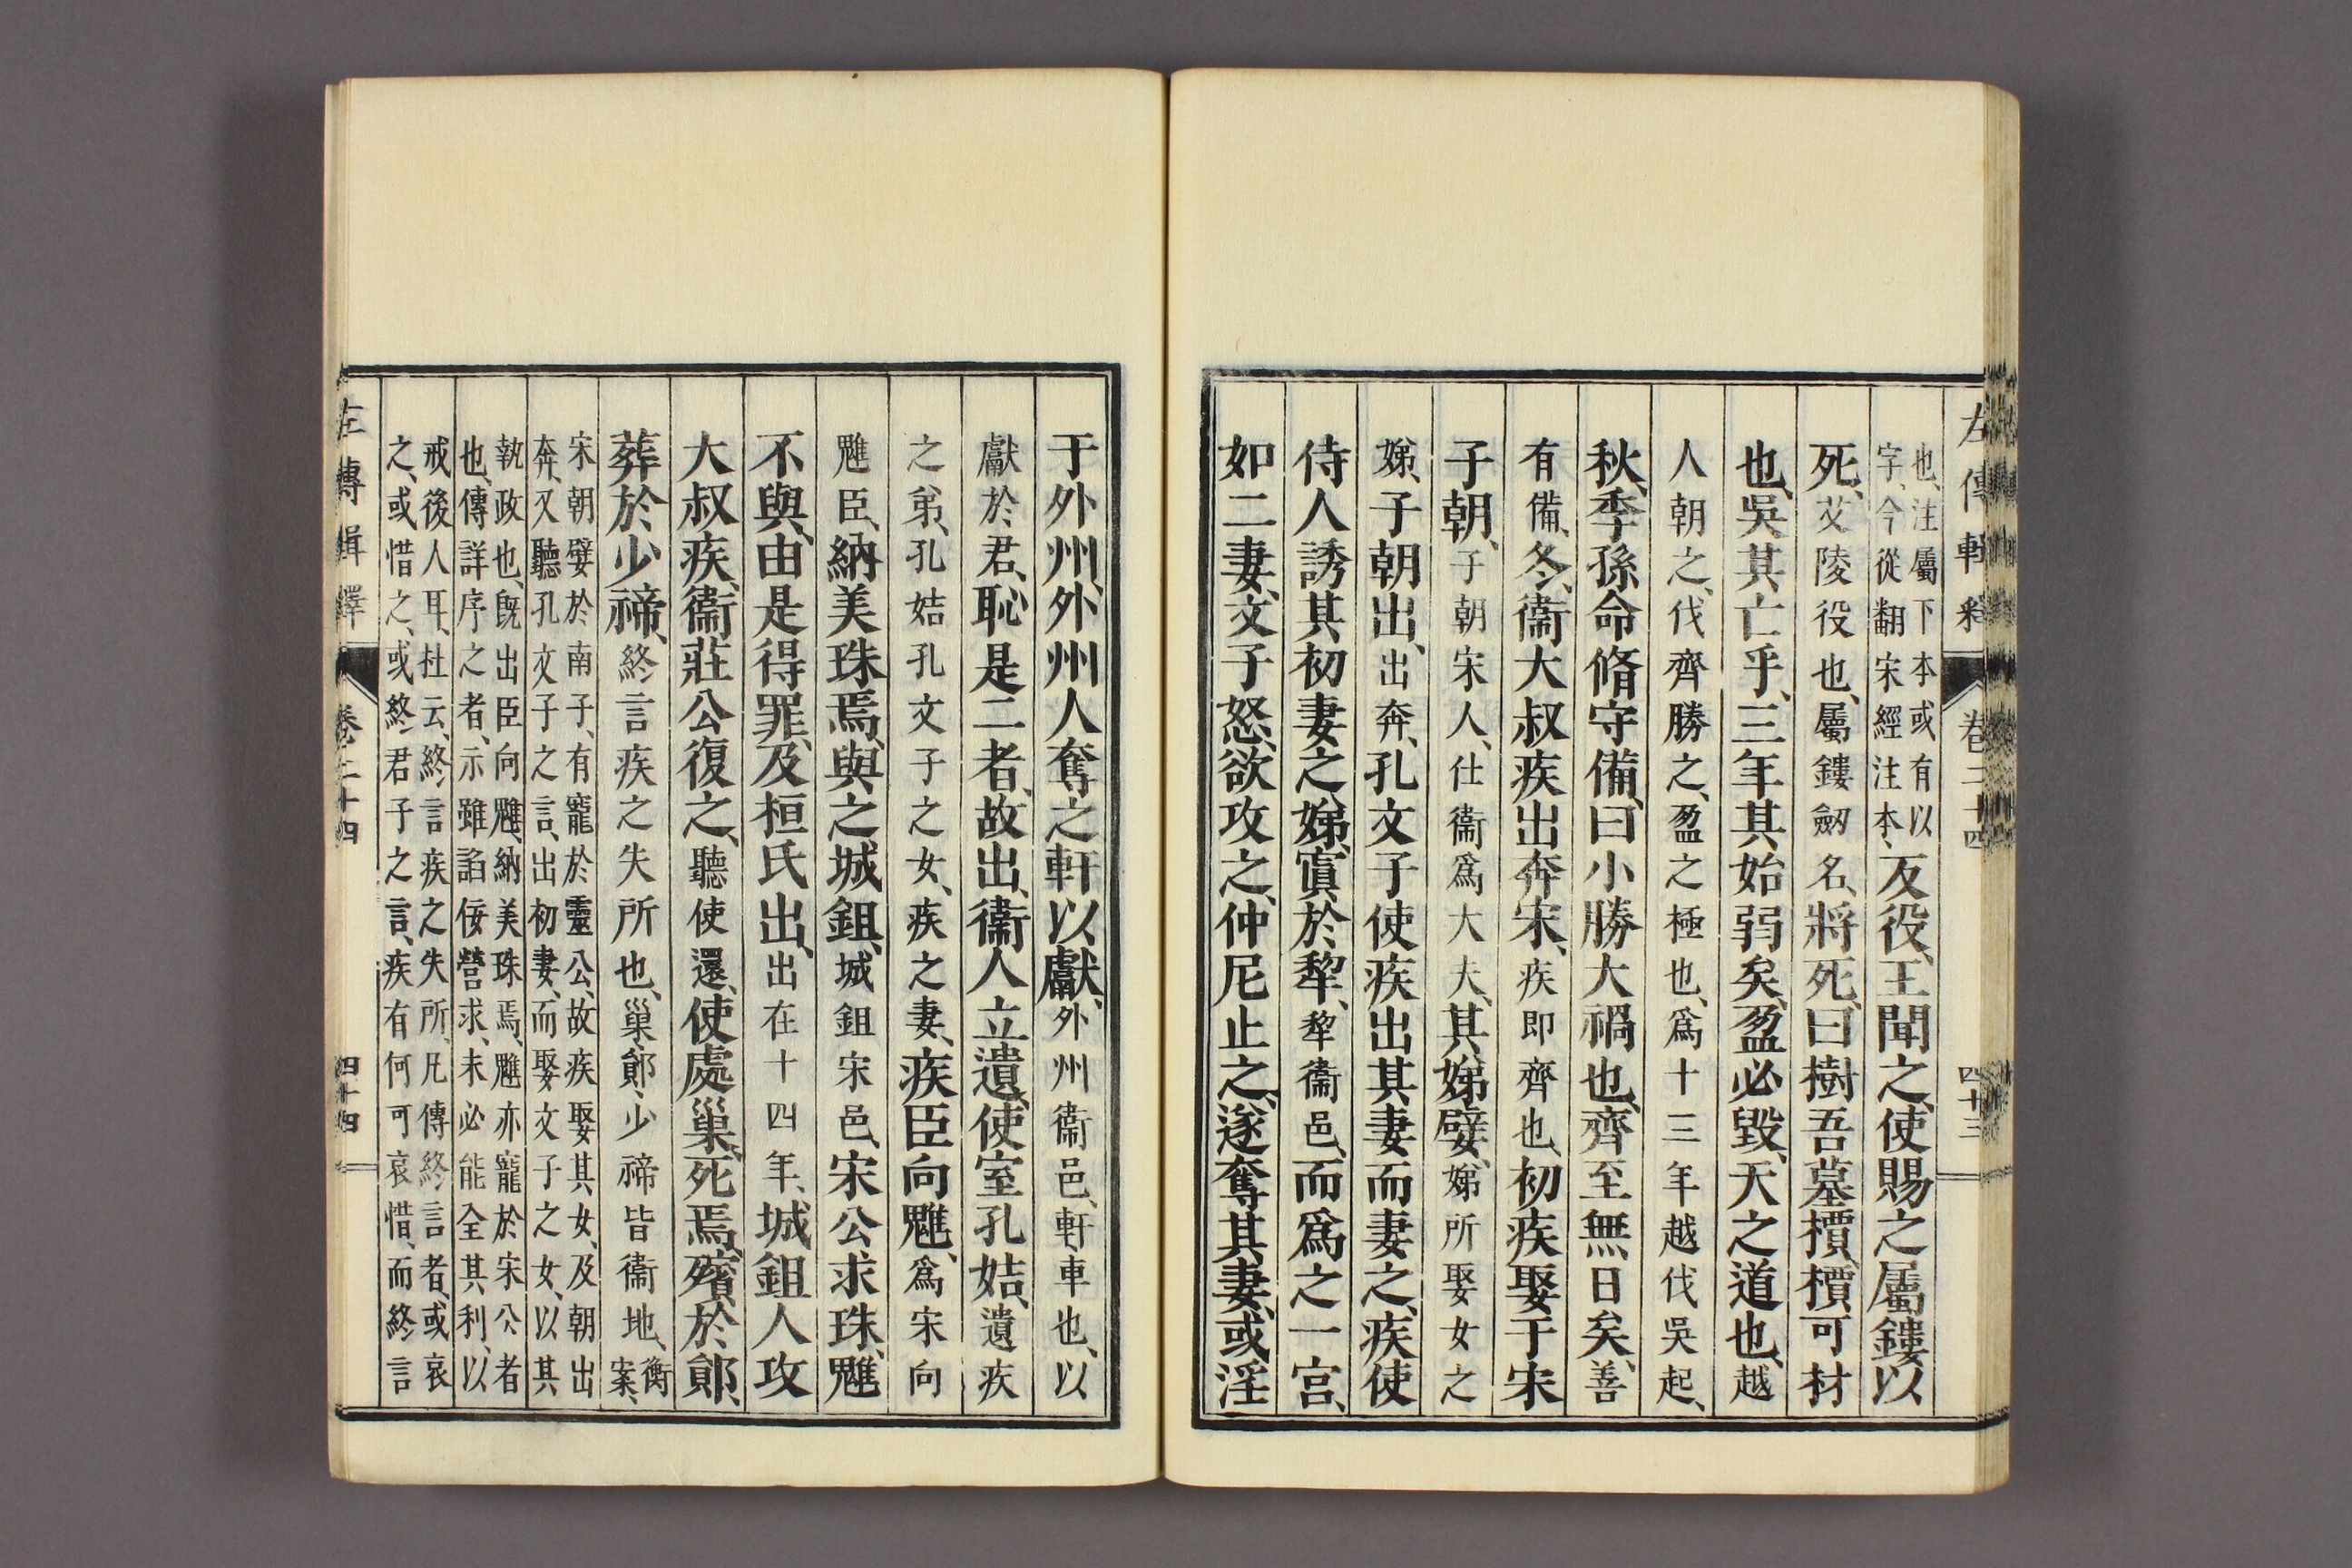 左傳輯釋 卷二十四 四十三
也、注屬下本或有以
字、今從翻宋經注本、
反役、王聞之、使賜之屬鏤以
死、艾陵役也、屬鏤劒名、將死、曰樹吾墓檟、檟可材
也、吳其亡乎、三年其始弱矣、盈必毀、天之道也、越
人朝之、伐齊勝之、盈之極也、爲十三年越伐吳起、
秋、季孫命脩守備、曰小勝大禍也、齊至無日矣、善
有備、冬、衞大叔疾出奔宋、疾即齊也、初疾娶于宋
子朝、子朝宋人、仕衞爲大夫、其娣嬖、娣所娶女之
娣、子朝出、出奔、孔文子使疾出其妻而妻之、疾使
侍人誘其初妻之娣、寘於犂、犂衞邑、而爲之一宮、
如二妻、文子怒、欲攻之、仲尼止之、遂奪其妻、或淫
于外州、外州人奪之軒以獻、外州衞邑、軒車也、以
獻於君、恥是二者、故出、衞人立遺、使室孔姞、遺疾
之弟、孔姞孔文子之女、疾之妻、疾臣向魋、爲宋向
魋臣、納美珠焉、與之城鉏、城鉏宋邑、宋公求珠、魋
不與、由是得罪、及桓氏出、出在十四年、城鉏人攻
大叔疾、衞莊公復之、聽使還、使處巢、死焉、殯於鄖、
葬於少禘、終言疾之失所也、巢、鄖、少禘皆衞地、衡
案、
宋朝嬖於南子、有寵於靈公、故疾娶其女、及朝出
奔、又聽孔文子之言、出初妻、而娶文子之女、以其
執政也、旣出臣向魋、納美珠焉、魋亦寵於宋公者
也、傳詳序之者、示雖諂佞營求、未必能全其利、以
戒後人耳、杜云、終言疾之失所、凡傳終言者、或哀
之、或惜之、或終君子之言、疾有何可哀惜、而終言
左傳輯釋 卷二十四 四十四